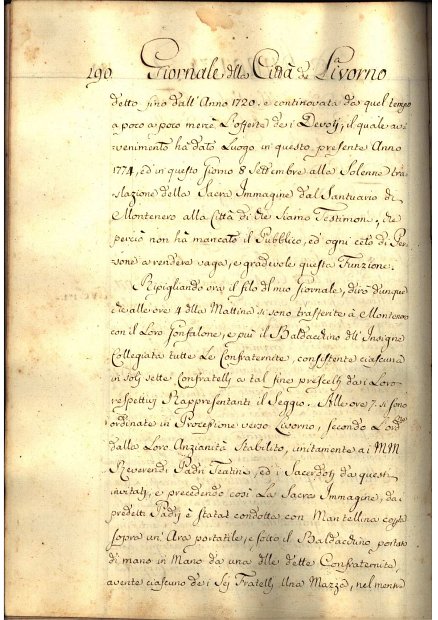 190 Giornale dlla Città di Livorno
detto fino dall'Anno 1720. e continovata da quel tempo
a poco a poco mercè L'offerte de i Devoti; il quale av=
venimento ha dato Luogo in questo presente Anno
1774, ed in questo giorno 8 Settembre alla Solenne tra=
slazione della Sacra Immagine dal Santuario di
Montenero alla Città di che siamo Testimoni, che
perciò non hà mancato il Pubblico, ed ogni ceto di Per=
sone a rendere vaga, e gradevole questa Funzione.
Ripigliando ora il filo dl mio Giornale, dirò dunque
che alle ore 4 dlla Mattina si sono trasferite à Montenero
con il Loro Gonfalone, e più il Baldacchino dll'Insigne
Collegiata tutte Le Confraternite, consistente ciascuna
in solj sette Confratelli a tal fine prescelti dai Loro
respettivj Rappresentanti il Seggio. Alle ore 7. si sono
ordinate in Processione verso Livorno, secondo L'ordine
dalla Loro Anzianità Stabilito, unitamente ai MM
Reverendi Padri Teatini, ed i Sacerdotj da questi
invitatj, e precedendo così La Sacra Immagine, dai
predetti Padrj è stata condotta con Mantellina coperta
sopra un'Ara portatile, e sotto il Baldacchino portato
di mano in Mano da una dlle dette Confraternite,
avente ciascuno de i Sej Fratelli Una Mazza, nel mentre